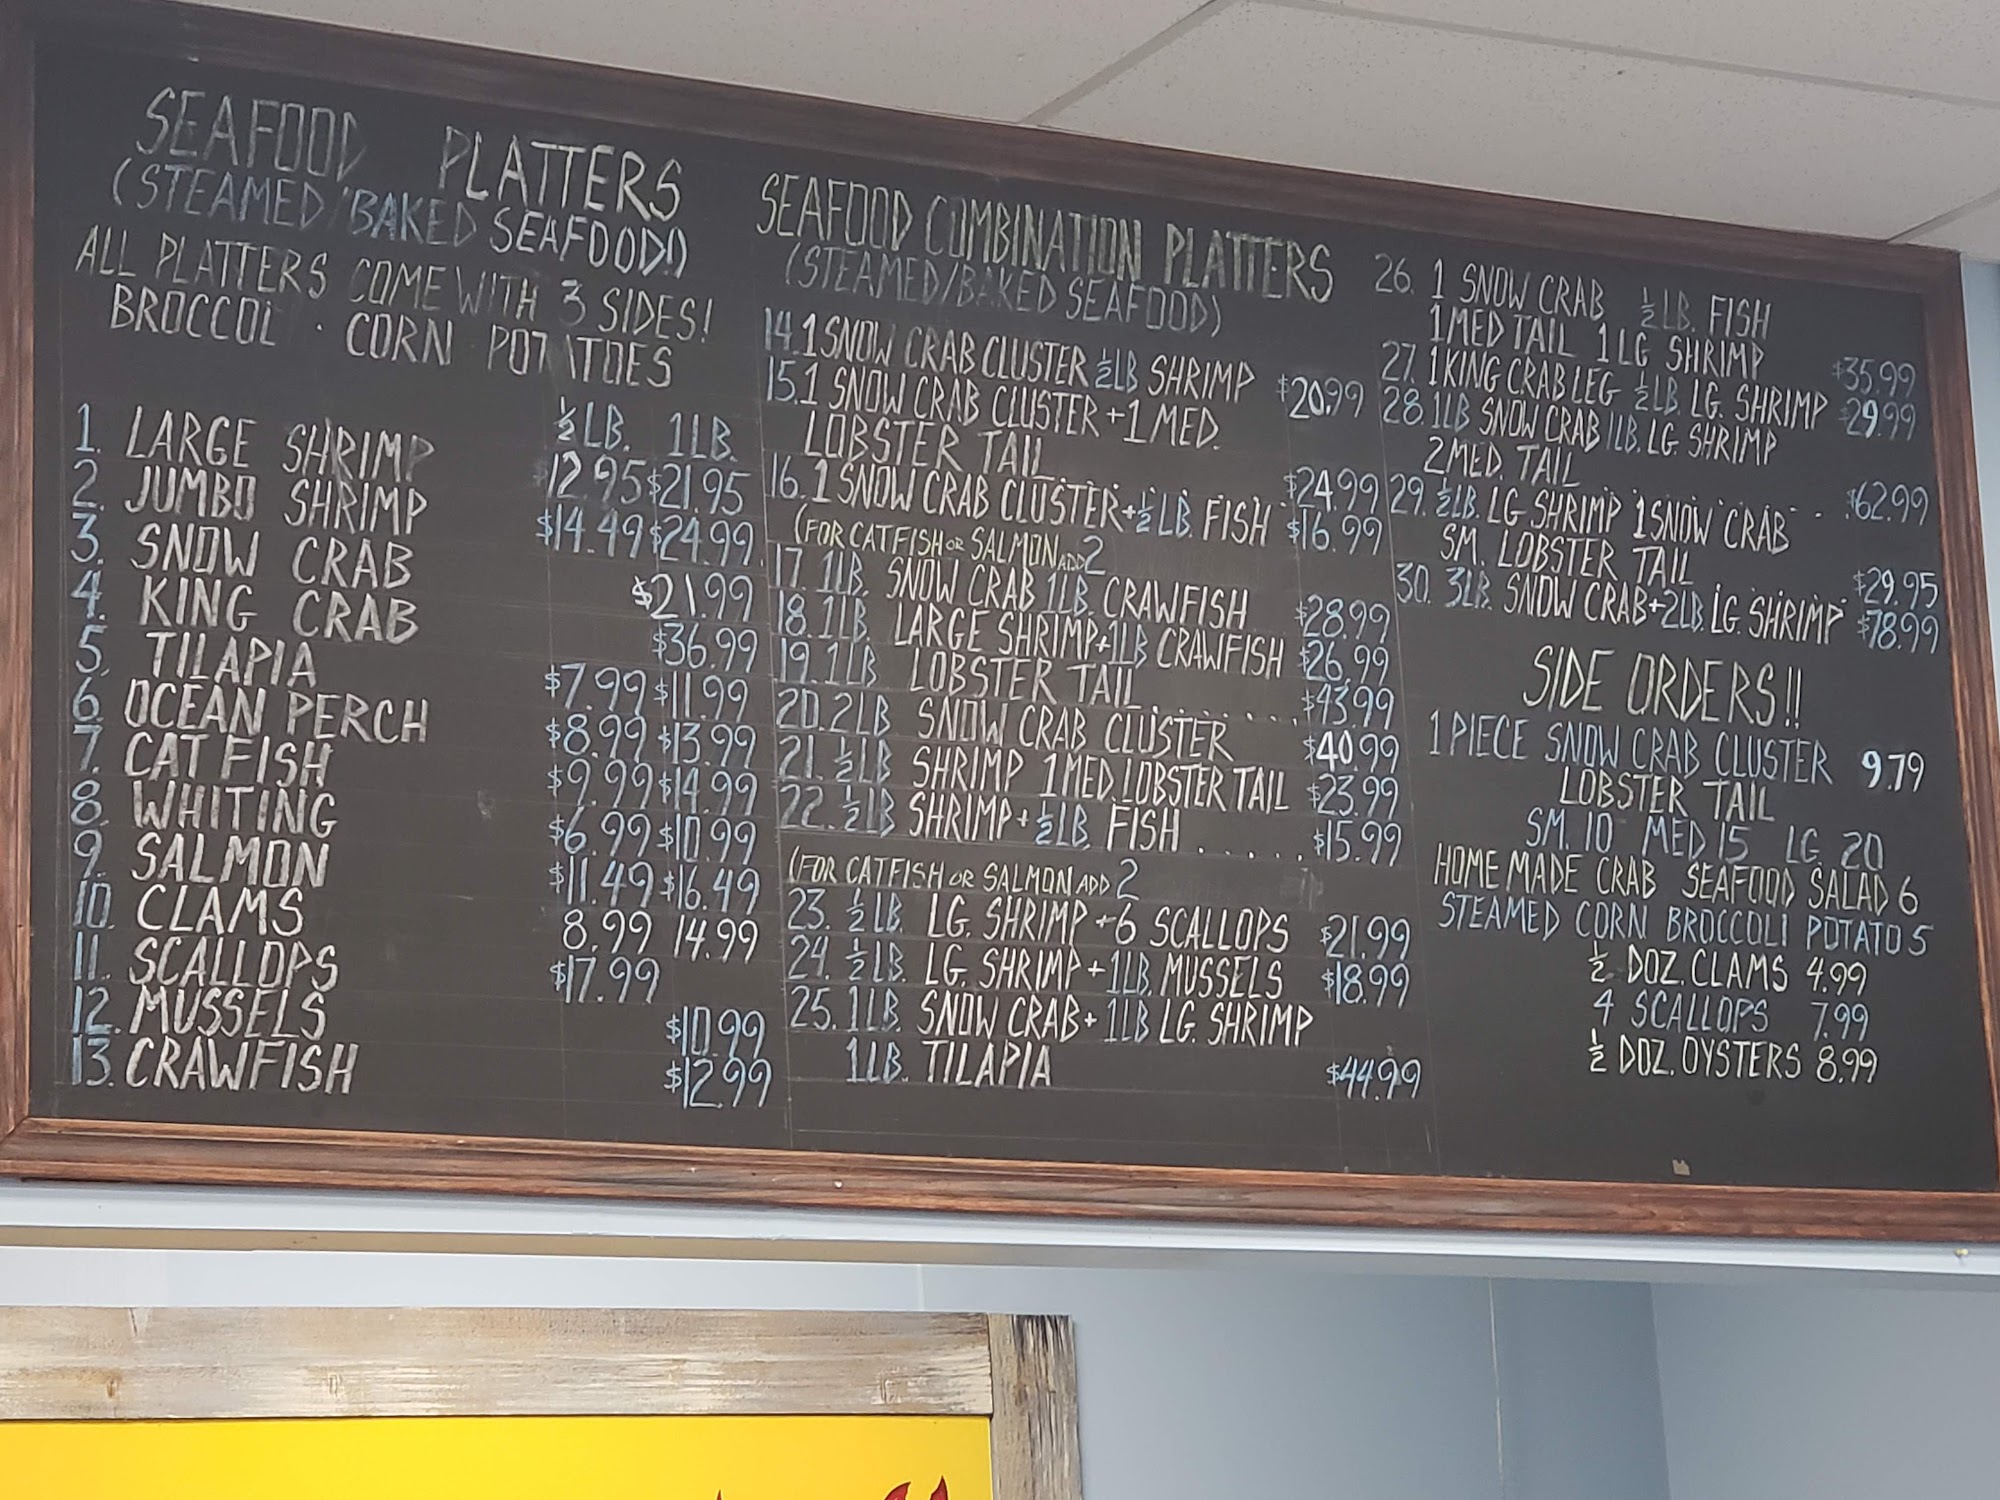 SEAFOOD PLATTERS
(STEAMED/BAKED SEAFOOD!)
ALL PLATTERS COME WITH 3 SIDES!
BROCCOLI · CORN POTATOES
½LB. 1LB.
1. LARGE SHRIMP $12.95 $21.95
2. JUMBO SHRIMP $14.49 $24.99
3. SNOW CRAB $21.99
4. KING CRAB $36.99
5. TILAPIA $7.99 $11.99
6. OCEAN PERCH $8.99 $13.99
7. CAT FISH $9.99 $14.99
8. WHITING $6.99 $10.99
9. SALMON $11.49 $16.49
10. CLAMS 8.99 14.99
11. SCALLOPS $17.99
12. MUSSELS $10.99
13. CRAWFISH $12.99
SEAFOOD COMBINATION PLATTERS
(STEAMED/BAKED SEAFOOD)
14. 1 SNOW CRAB CLUSTER ½LB SHRIMP $20.99
15. 1 SNOW CRAB CLUSTER + 1 MED.
LOBSTER TAIL....... $24.99
16. 1 SNOW CRAB CLUSTER + ½LB. FISH $16.99
(FOR CATFISH OR SALMON ADD 2
17. 1LB. SNOW CRAB 1LB. CRAWFISH $28.99
18. 1LB. LARGE SHRIMP + 1LB CRAWFISH $26.99
19. 1LB LOBSTER TAIL....... $43.99
20. 2LB SNOW CRAB CLUSTER $40.99
21. ½LB SHRIMP 1 MED. LOBSTER TAIL $23.99
22. ½LB SHRIMP + ½LB. FISH ..... $15.99
(FOR CATFISH OR SALMON ADD 2
23. ½LB. LG. SHRIMP + 6 SCALLOPS $21.99
24. ½LB. LG. SHRIMP + 1LB. MUSSELS $18.99
25. 1LB. SNOW CRAB + 1LB LG. SHRIMP
1LB. TILAPIA $44.99
26. 1 SNOW CRAB ½LB. FISH
1 MED TAIL 1 LG SHRIMP $35.99
27. 1 KING CRAB LEG ½LB. LG. SHRIMP $29.99
28. 1LB SNOW CRAB 1LB. LG. SHRIMP
2 MED. TAIL ....... $62.99
29. ½LB. LG SHRIMP 1 SNOW CRAB
SM. LOBSTER TAIL .... $29.95
30. 3LB. SNOW CRAB + 2LB. LG. SHRIMP $78.99
SIDE ORDERS!!
1 PIECE SNOW CRAB CLUSTER 9.79
LOBSTER TAIL
SM. 10 MED 15 LG. 20
HOME MADE CRAB SEAFOOD SALAD 6
STEAMED CORN BROCCOLI POTATO 5
½ DOZ. CLAMS 4.99
4 SCALLOPS 7.99
½ DOZ. OYSTERS 8.99